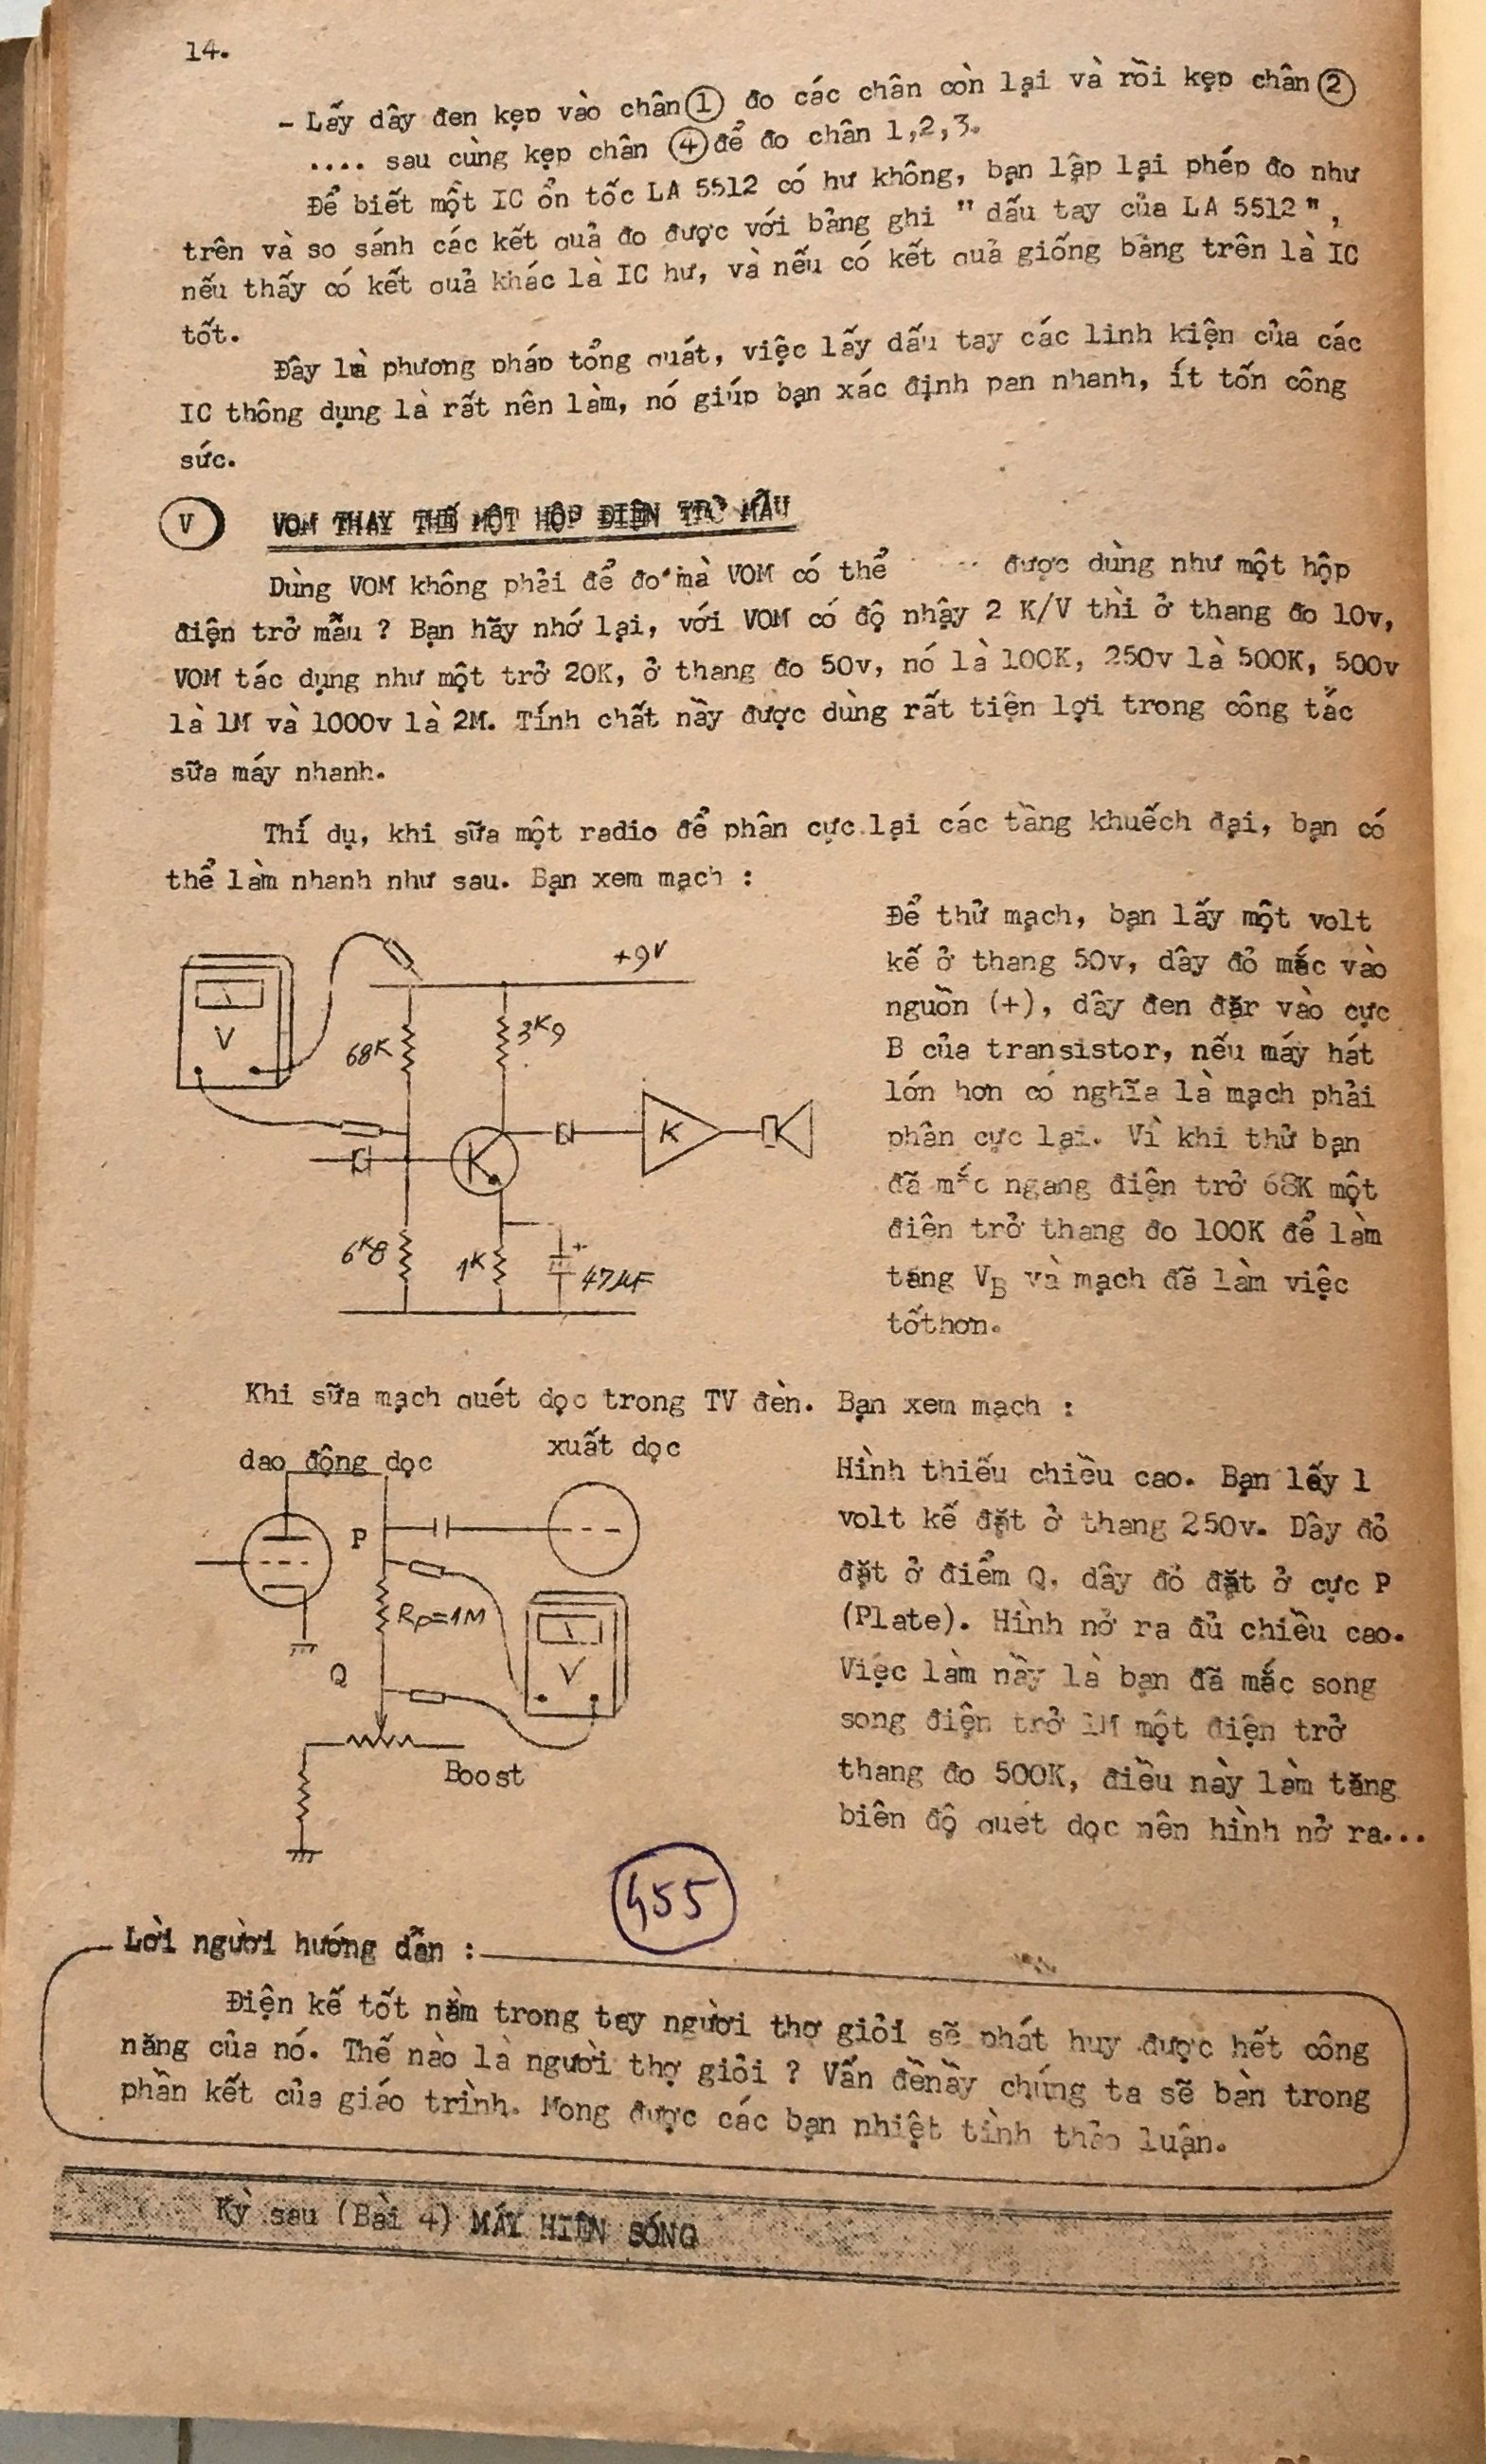 14.
- Lấy dây đen kẹp vào chân 1 đo các chân còn lại và rồi kẹp chân 2
.... sau cùng kẹp chân 4 để đo chân 1,2,3.
Để biết một IC ổn tốc LA 5512 có hư không, bạn lập lại phép đo như
trên và so sánh các kết quả đo được với bảng ghi " dấu tay của LA 5512 ",
nếu thấy có kết quả khác là IC hư, và nếu có kết quả giống bảng trên là IC
tốt.
Đây là phương pháp tổng quát, việc lấy dấu tay các linh kiện của các
IC thông dụng là rất nên làm, nó giúp bạn xác định pan nhanh, ít tốn công
sức.
V VOM THAY THẾ MỘT HỘP ĐIỆN TRỞ MẪU
Dùng VOM không phải để đo mà VOM có thể được dùng như một hộp
điện trở mẫu ? Bạn hãy nhớ lại, với VOM có độ nhậy 2 K/V thì ở thang đo 10v,
VOM tác dụng như một trở 20K, ở thang đo 50v, nó là 100K, 250v là 500K, 500v
là 1M và 1000v là 2M. Tính chất nầy được dùng rất tiện lợi trong công tắc
sữa máy nhanh.
Thí dụ, khi sữa một radio để phân cực lại các tầng khuếch đại, bạn có
thể làm nhanh như sau. Bạn xem mạch :
+9V
V
68K
3K9
K
6K8
1K
+
47µF
Để thử mạch, bạn lấy một volt
kế ở thang 50v, dây đỏ mắc vào
nguồn (+), dây đen đặr vào cực
B của transistor, nếu máy hát
lớn hơn có nghĩa là mạch phải
phân cực lại. Vì khi thử bạn
đã mắc ngang điện trở 68K một
điện trở thang đo 100K để làm
tăng VB và mạch đã làm việc
tốthơn.
Khi sữa mạch quét dọc trong TV đèn. Bạn xem mạch :
dao động dọc
xuất dọc
P
Rp=1M
V
Q
Boost
Hình thiếu chiều cao. Bạn lấy 1
volt kế đặt ở thang 250v. Dây đỏ
đặt ở điểm Q, dây đỏ đặt ở cực P
(Plate). Hình nở ra đủ chiều cao.
Việc làm nầy là bạn đã mắc song
song điện trở 1M một điện trở
thang đo 500K, điều này làm tăng
biên độ quét dọc nên hình nở ra...
455
Lời người hướng dẫn :
Điện kế tốt nằm trong tay người thợ giỏi sẽ phát huy được hết công
năng của nó. Thế nào là người thợ giỏi ? Vấn đềnầy chúng ta sẽ bàn trong
phần kết của giáo trình. Mong được các bạn nhiệt tình thảo luận.
Kỳ sau (Bài 4) MÁY HIỆN SÓNG